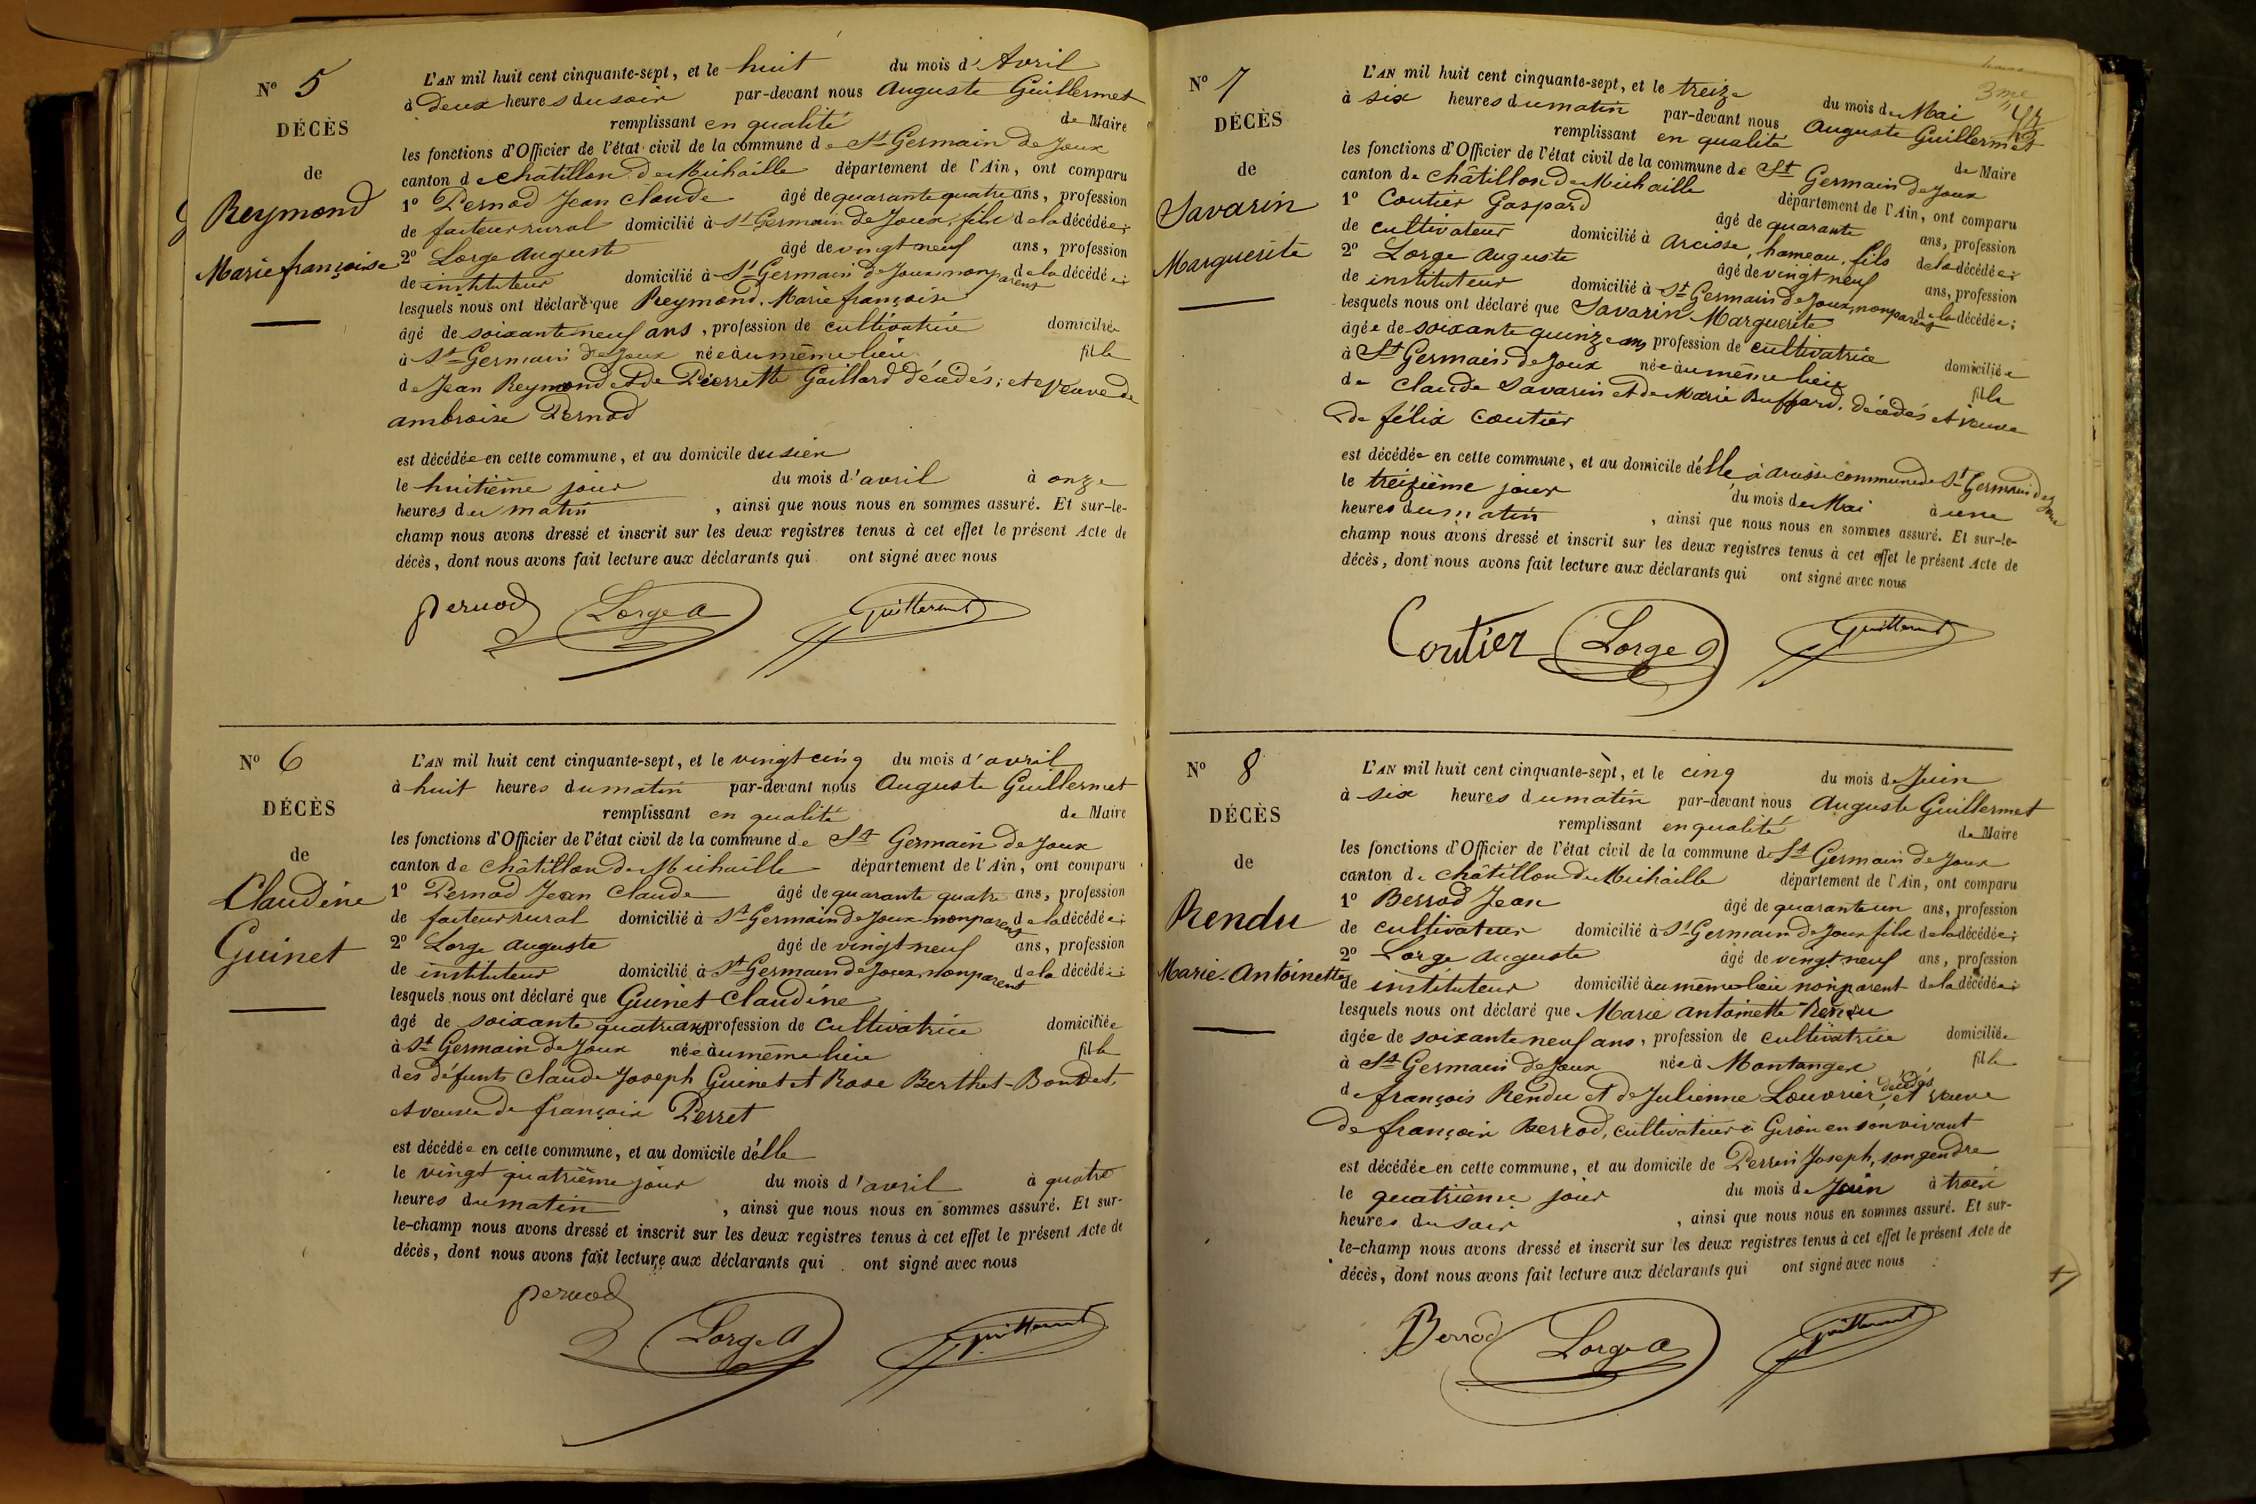 Nº 5
DÉCÈS
de
Reymond
Marie françoise
L'AN mil huit cent cinquante-sept, et le huit du mois d'Avril
à Deux heures du soir par-devant nous Auguste Guillermet
remplissant en qualité de Maire
les fonctions d'Officier de l'état civil de la commune de St Germain de Joux
canton de Chatillon de Michaille département de l'Ain, ont comparu
1º Pernod Jean Claude âgé de quarante quatre ans, profession
de facteur rural domicilié à St Germain de Joux, fils de la décédée;
2º Lorge Auguste âgé de vingt neuf ans, profession
de instituteur domicilié à St Germain de Joux, non parent de la décédée;
lesquels nous ont déclaré que Reymond, Marie françoise
âgé de soixante neuf ans, profession de cultivatrice domiciliée
à St Germain de Joux née au même lieu fille
de Jean Reymond et de Pierrette Gaillard décédés; et veuve de
ambroise Pernod
est décédée en cette commune, et au domicile du sien
le huitième jour du mois d'avril à onze
heures du matin, ainsi que nous nous en sommes assuré. Et sur-le-
champ nous avons dressé et inscrit sur les deux registres tenus à cet effet le présent Acte de
décès, dont nous avons fait lecture aux déclarants qui ont signé avec nous
Pernod Lorge A Guillermet
Nº 6
DÉCÈS
de
Claudine
Guinet
L'AN mil huit cent cinquante-sept, et le vingt cinq du mois d'avril
à huit heures du matin par-devant nous Auguste Guillermet
remplissant en qualité de Maire
les fonctions d'Officier de l'état civil de la commune de St Germain de Joux
canton de Châtillon de Michaille département de l'Ain, ont comparu
1º Pernod Jean Claude âgé de quarante quatre ans, profession
de facteur rural domicilié à St Germain de Joux non parent de la décédée;
2º Lorge Auguste âgé de vingt neuf ans, profession
de instituteur domicilié à St Germain de Joux, non parent de la décédée;
lesquels nous ont déclaré que Guinet Claudine
âgé de soixante quatre ans profession de cultivatrice domiciliée
à St Germain de Joux née au même lieu fille
des défunts Claude Joseph Guinet et Rose Berthet-Bondet,
et veuve de françois Perret
est décédée en cette commune, et au domicile d'elle
le vingt quatrième jour du mois d'avril à quatre
heures du matin, ainsi que nous nous en sommes assuré. Et sur-
le-champ nous avons dressé et inscrit sur les deux registres tenus à cet effet le présent Acte de
décès, dont nous avons fait lecture aux déclarants qui ont signé avec nous
Pernod Lorge A Guillermet
3me
Nº 7
DÉCÈS
de
Savarin
Marguerite
L'AN mil huit cent cinquante-sept, et le treize du mois de Mai
à six heures du matin par-devant nous Auguste Guillermet
remplissant en qualité de Maire
les fonctions d'Officier de l'état civil de la commune de St Germain de Joux
canton de Châtillon de Michaille département de l'Ain, ont comparu
1º Coutier Gaspard âgé de quarante ans, profession
de cultivateur domicilié à Arcisse, hameau, fils de la décédée;
2º Lorge Auguste âgé de vingt neuf ans, profession
de instituteur domicilié à St Germain de Joux, non parent de la décédée;
lesquels nous ont déclaré que Savarin Marguerite
âgée de soixante quinze ans profession de cultivatrice domiciliée
à St Germain, de Joux née au même lieu fille
de Claude Savarin et de Marie Buffard, décédés et veuve
de félix Coutier
est décédée en cette commune, et au domicile d'elle à arcisse commune de St Germain de Joux
le treizième jour du mois de Mai à une
heures du matin, ainsi que nous nous en sommes assuré. Et sur-le-
champ nous avons dressé et inscrit sur les deux registres tenus à cet effet le présent Acte de
décès, dont nous avons fait lecture aux déclarants qui ont signé avec nous
Coutier Lorge A Guillermet
Nº 8
DÉCÈS
de
Rendu
Marie-Antoinette
L'AN mil huit cent cinquante-sept, et le cinq du mois de Juin
à six heures du matin par-devant nous Auguste Guillermet
remplissant en qualité de Maire
les fonctions d'Officier de l'état civil de la commune de St Germain de Joux
canton de Châtillon de Michaille département de l'Ain, ont comparu
1º Berrod Jean âgé de quarante un ans, profession
de cultivateur domicilié à St Germain de Joux fils de la décédée;
2º Lorge Auguste âgé de vingt neuf ans, profession
de instituteur domicilié au même lieu non parent de la décédée;
lesquels nous ont déclaré que Marie Antoinette Rendu
âgée de soixante neuf ans, profession de cultivatrice domiciliée
à St Germain de Joux née à Montanges fille
de françois Rendu et de Julienne Louvrier, décédés et veuve
de françois Berrod, cultivateur à Giron en son vivant
est décédée en cette commune, et au domicile de Perrin Joseph, son gendre
le quatrième jour du mois de Juin à trois
heures du soir, ainsi que nous nous en sommes assuré. Et sur-
le-champ nous avons dressé et inscrit sur les deux registres tenus à cet effet le présent Acte de
décès, dont nous avons fait lecture aux déclarants qui ont signé avec nous
Berrod Lorge A Guillermet